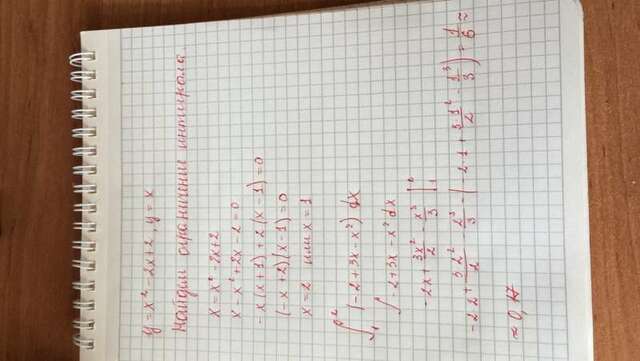 y = x² - 2x + 2, y = x
Найдем ограничение интеграла.
x = x² - 2x + 2
x - x² + 2x - 2 = 0
-x(x+1) + 2(x-1) = 0
(-x+2)(x-1) = 0
x = 2 или x = 1
∫₁² (-2 + 3x - x²) dx
∫ -2 + 3x - x² dx
-2x + 3x²/2 - x³/3 |₁²
-2·2 + 3·2²/2 - 2³/3 - (-2·1 + 3·1²/2 - 1³/3) = 1/6 ≈
≈ 0,17